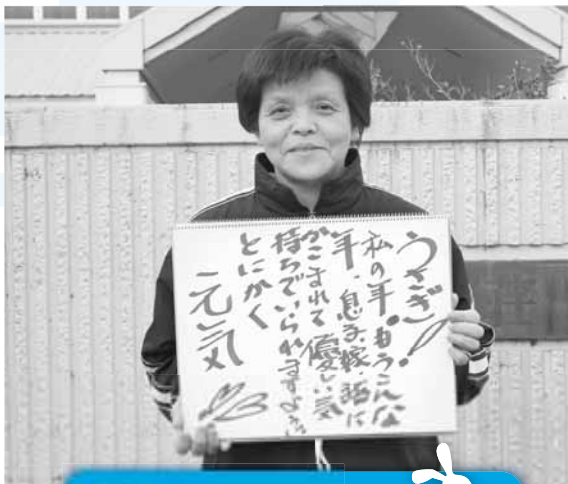 うさぎ!!
私の年。もうこんな
年、息子、嫁、孫に
かこまれて優しい気
持ちでいられますように
とにかく
元気